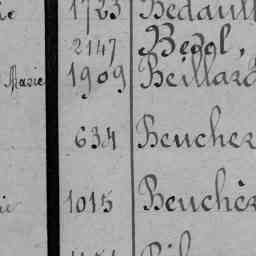 1723 Bedaull
2147 Begol,
Marie 1909 Beillard
634 Beucher
1015 Beuchèr